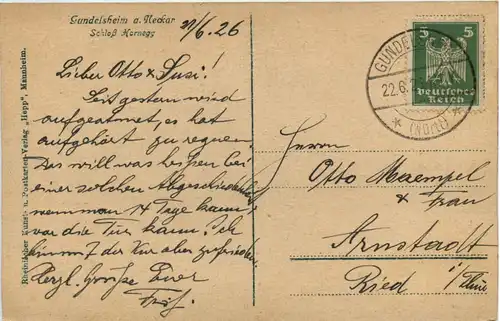 Gundelsheim a. Neckar
Schloß Hornegg
21/6.26
Lieber Otto & Susi!
Seit gestern wird
aufgeatmet, es hat
aufgehört zu regnen.
Das will was heißen bei
einer solchen Abgeschiedenheit
wenn man 14 Tage kaum
vor die Tür kann. Ich
bin mit der Kur aber zufrieden.
Herzl. Grüße Euer
Herrn
Otto Maempel
& Frau
Arnstadt
Ried i/Thür
5 5
Deutsches
Reich
GUNDEL
22.6.
(Württ)
Rheinischer Kunst- u. Postkarten-Verlag „Hepp", Mannheim.